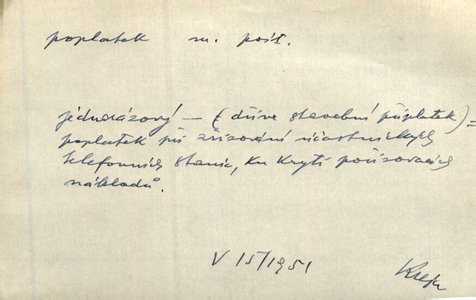 poplatek m. pošt.
jednorázový — (dříve stavební příplatek) =
poplatek při zřizování účastnických
telefonních stanic, ku krytí pořizovacích
nákladů.
V 15/1951